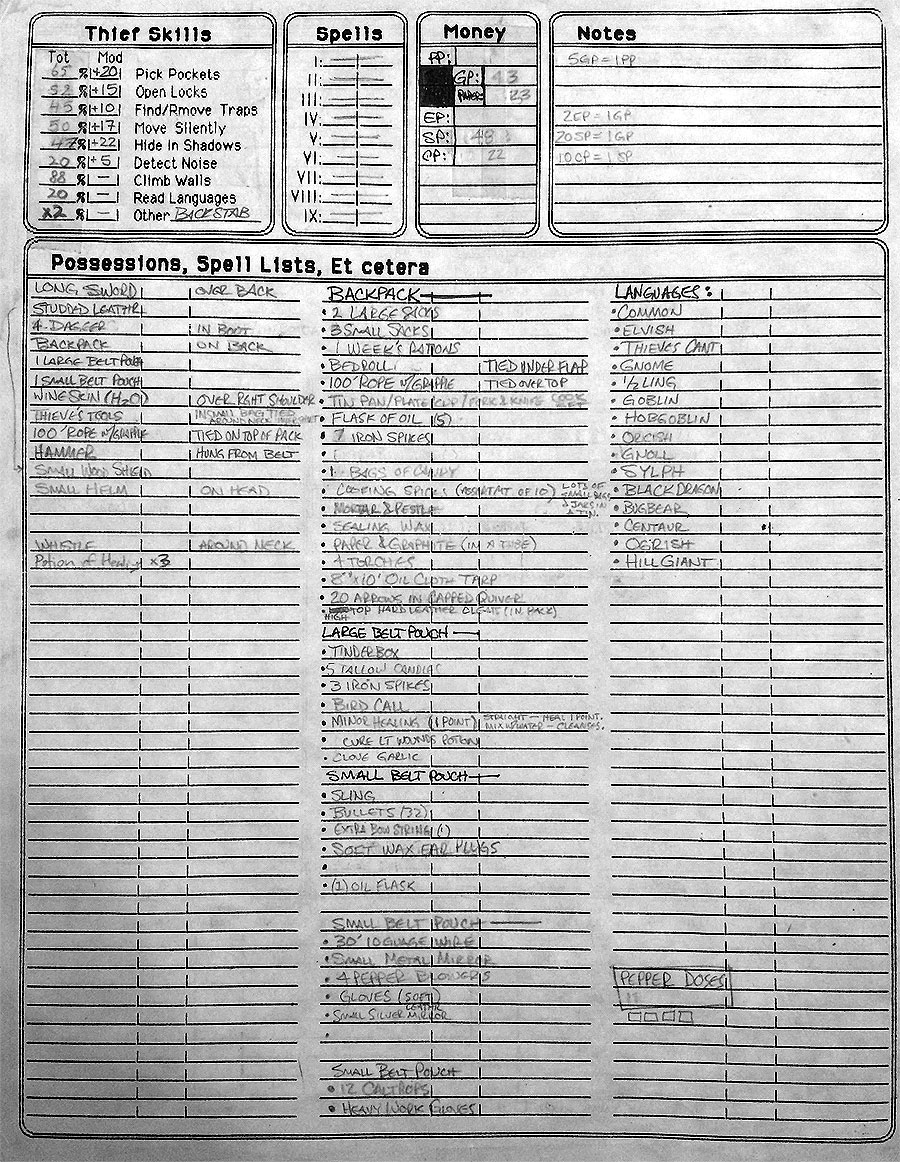 Thief Skills
Tot Mod
65 % +20 Pick Pockets
52 % +15 Open Locks
45 % +10 Find/Rmove Traps
50 % +17 Move Silently
47 % +22 Hide in Shadows
20 % +5 Detect Noise
88 % — Climb Walls
20 % — Read Languages
x2 % — Other BACKSTAB
Spells
I:
II:
III:
IV:
V:
VI:
VII:
VIII:
IX:
Money
PP:
GP: 43
23
EP:
SP: 48
CP: 22
Notes
5GP = 1PP
2EP = 1GP
20SP = 1GP
10CP = 1SP
Possessions, Spell Lists, Et cetera
LONG SWORD OVER BACK
STUDDED LEATHR
4 DAGGER IN BOOT
BACKPACK ON BACK
1 LARGE BELT POUCH
1 SMALL BELT POUCH
WINE SKIN (H2O) OVER RGHT SHOULDER
THIEVE'S TOOLS IN SMALL BAG TIED AROUND NECK
100' ROPE W/GRAPPLE TIED ON TOP OF PACK
HAMMER HUNG FROM BELT
SMALL WOOD SHIELD
SMALL HELM ON HEAD
WHISTLE AROUND NECK
Potion of Healing x3
BACKPACK
• 2 LARGE SACKS
• 3 SMALL SACKS
• 1 WEEK'S RATIONS
• BEDROLL TIED UNDER FLAP
• 100' ROPE W/GRAPPLE TIED OVER TOP
• TIN PAN/PLATE/CUP/FORK & KNIFE COOK SET
• FLASK OF OIL (5)
• 7 IRON SPIKES
•
• 1 BAGS OF CANDY
• COOKING SPICES (ASSORTMT OF 10) LOTS OF SMALL BAGS & JARS IN A TIN.
• MORTAR & PESTLE
• SEALING WAX
• PAPER & GRAPHITE (IN A TUBE)
• 4 TORCHES
• 8'x10' OIL CLOTH TARP
• 20 ARROWS IN CAPPED QUIVER
• HIGH TOP HARD LEATHER CLEATS (IN PACK)
LARGE BELT POUCH
• TINDERBOX
• 5 TALLOW CANDLES
• 3 IRON SPIKES
• BIRD CALL
• MINOR HEALING (1 POINT) STRAIGHT — HEAL 1 POINT. MIX W/WATER — CLEANSES.
• CURE LT WOUNDS POTION
• CLOVE GARLIC
SMALL BELT POUCH
• SLING
• BULLETS (32)
• EXTRA BOW STRING (1)
• SOFT WAX EAR PLUGS
•
• (1) OIL FLASK
SMALL BELT POUCH
• 30' 10 GUAGE WIRE
• SMALL METAL MIRROR
• 4 PEPPER BLOWERS
• GLOVES (SOFT LEATHER)
• SMALL SILVER MIRROR
•
SMALL BELT POUCH
• 12 CALTROPS
• HEAVY WORK GLOVES
LANGUAGES:
• COMMON
• ELVISH
• THIEVES CANT
• GNOME
• 1/2 LING
• GOBLIN
• HOBGOBLIN
• ORCISH
• GNOLL
• SYLPH
• BLACK DRAGON
• BUGBEAR
• CENTAUR
• OGRISH
• HILL GIANT
PEPPER DOSES